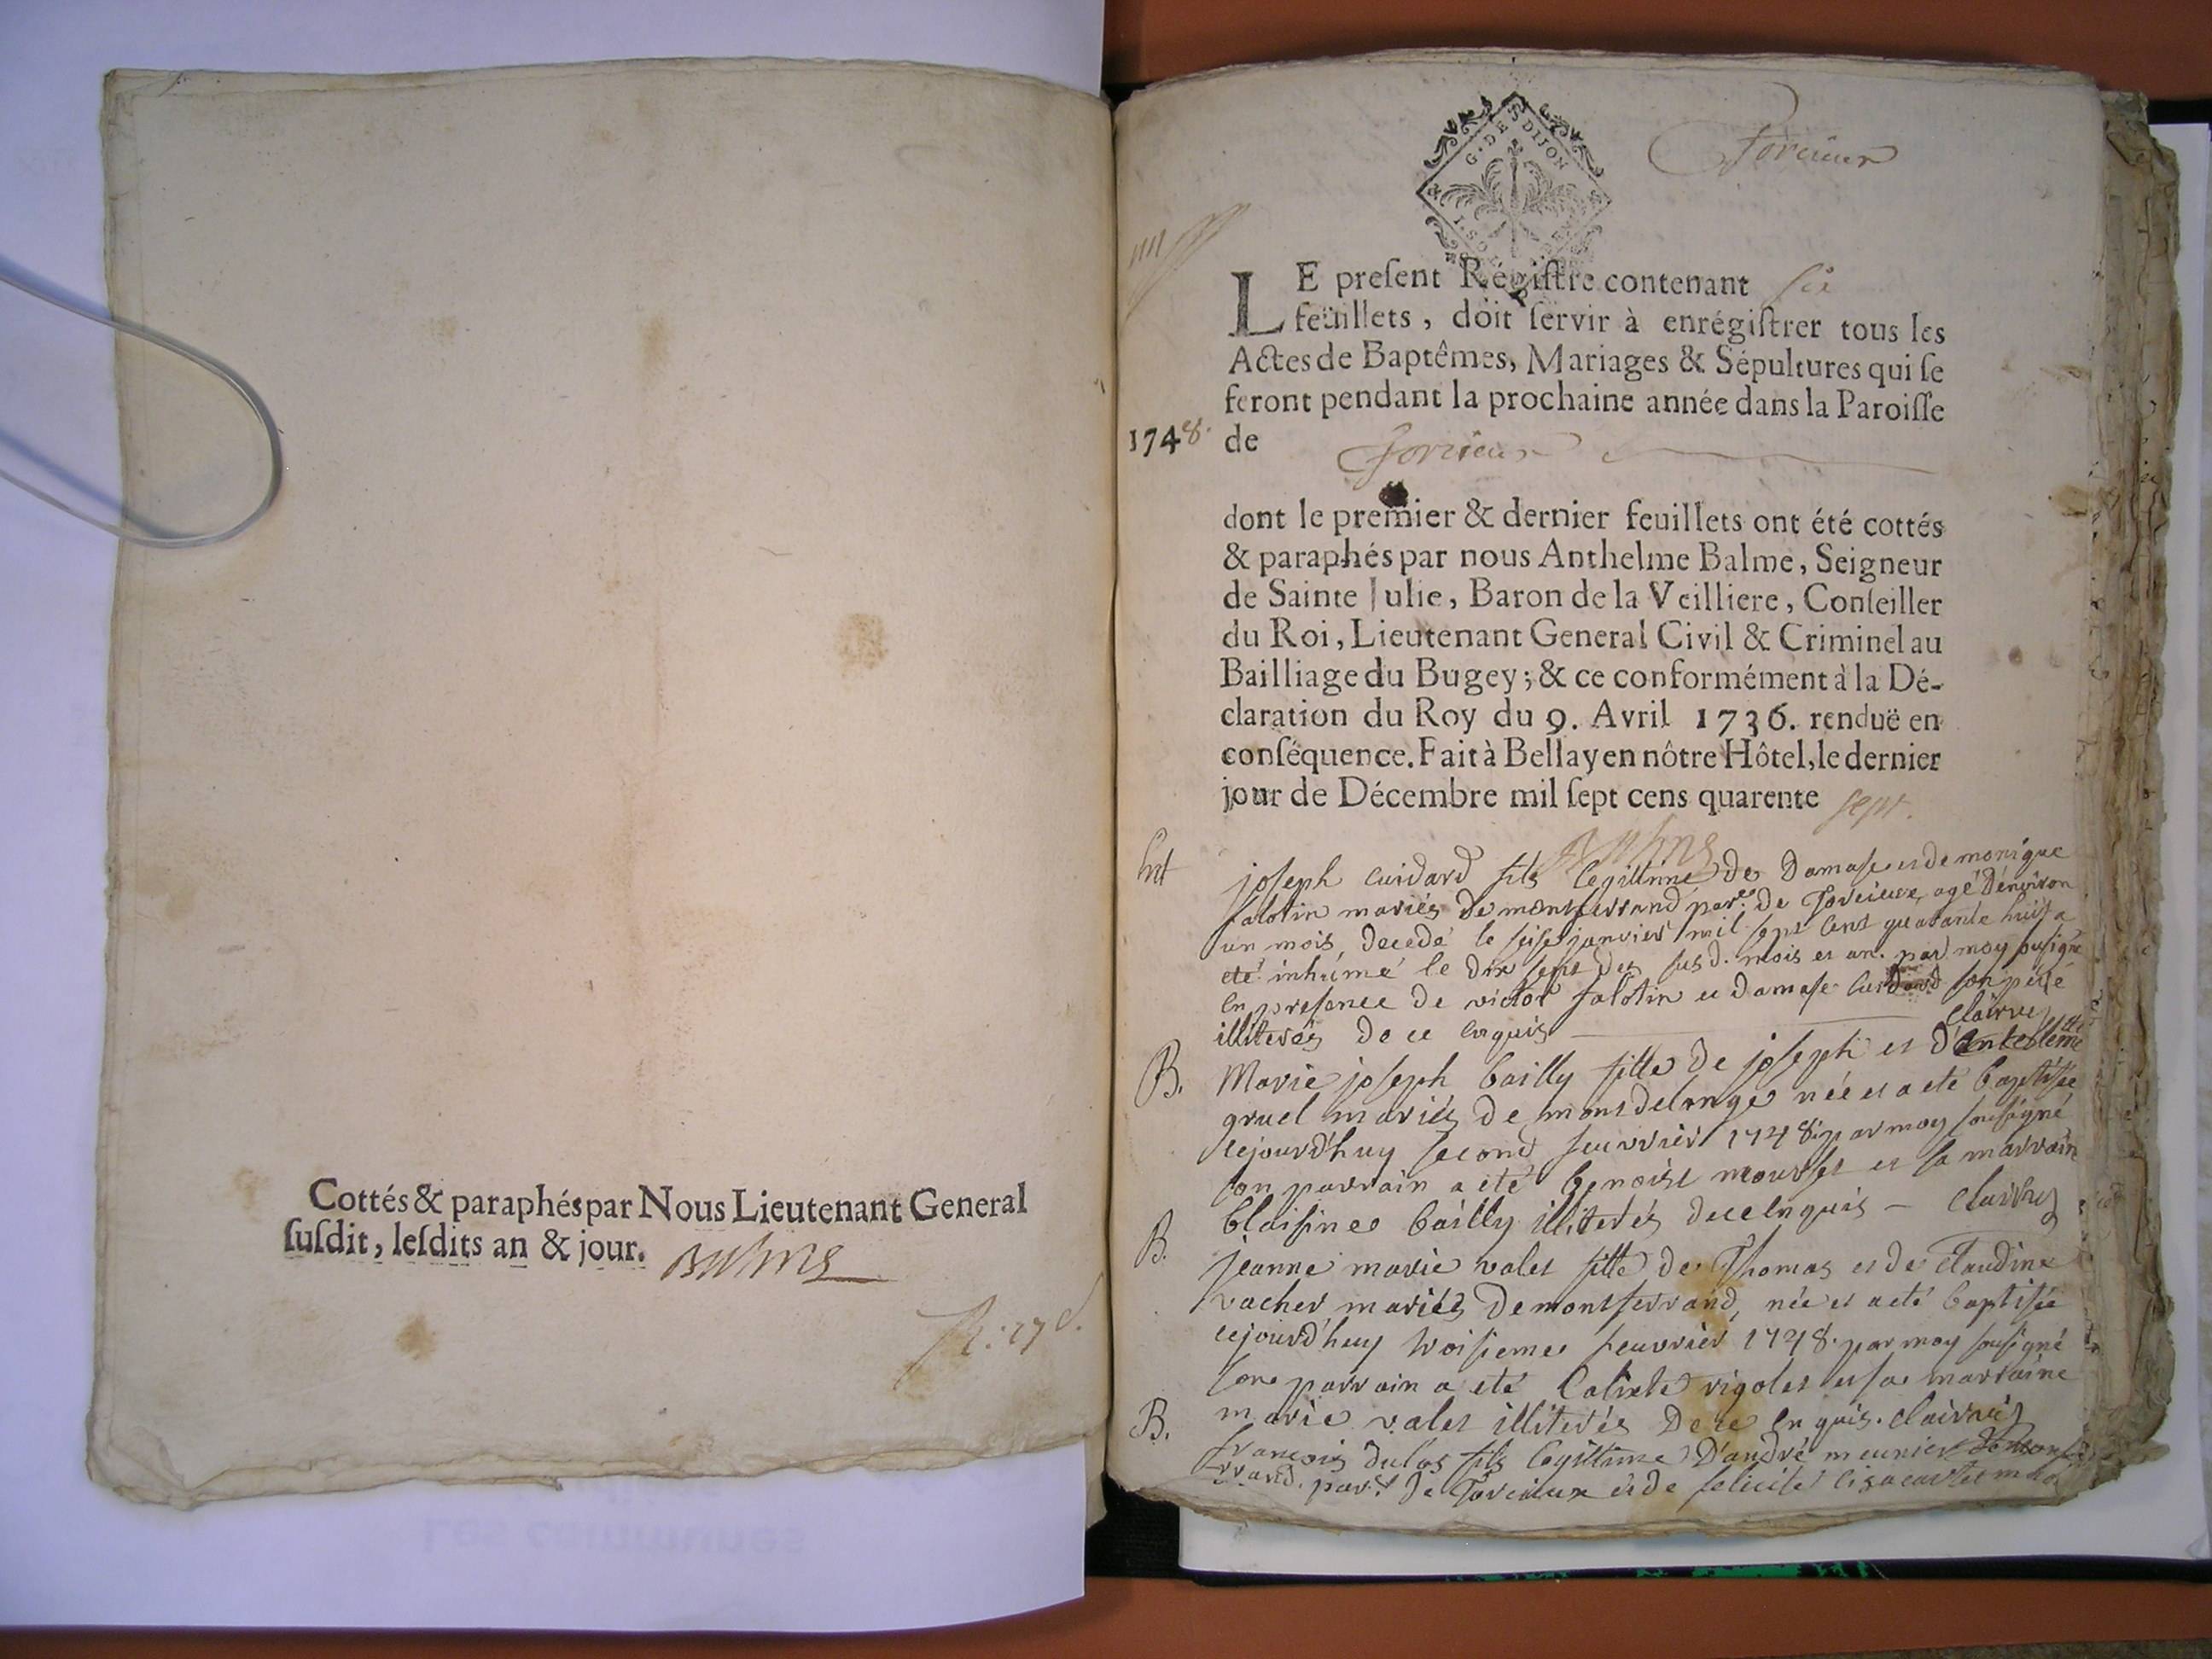 Cottés & paraphés par Nous Lieutenant General
ſuſdit, leſdits an & jour.
G. DES DIJON
Torcieux
LE preſent Régiſtre contenant six
feüillets, doit ſervir à enrégiſtrer tous les
Actes de Baptêmes, Mariages & Sépultures qui ſe
feront pendant la prochaine année dans la Paroiſſe
1748. de Torcieux
dont le premier & dernier feuillets ont été cottés
& paraphés par nous Anthelme Balme, Seigneur
de Sainte Julie, Baron de la Veilliere, Conſeiller
du Roi, Lieutenant General Civil & Criminel au
Bailliage du Bugey; & ce conformément à la Dé-
claration du Roy du 9. Avril 1736. renduë en
conſéquence. Fait à Bellay en nôtre Hôtel, le dernier
jour de Décembre mil ſept cens quarente sept.
joseph cuidard fils legittime de Damase et de monique
falotin mariés de montferrand par.e de Torcieux, agé D'environ
un mois, decedé le seise janvier mil sept cent quarante huit a
eté inhumé le dix sept des susd. mois et an. par moy sousigné
en presence de victor falotin et damase cuidard son pere
illiterés de ce enquis Clairvey
B. Marie joseph bailly fille de joseph et d'Anthelme
gruel mariés de montdelange née et a eté baptisée
cejourd'huy second feuvrier 1748. par moy sousigné
son parrain a eté benoist et sa marraine
blaisine bailly illiterés de ce enquis - Clairvey
B. jeanne marie valet fille de Thomas et de claudine
vacher mariés de montferrand, née et a eté baptisée
cejourd'huy troisieme feuvrier 1748. par moy sousigné
son parrain a eté rigolet et sa marraine
marie valet illiterés De ce enquis. Clairvey
B. françois dulos fils legittime D'andré meunier
rrand. par.e De Torcieux et de felicité